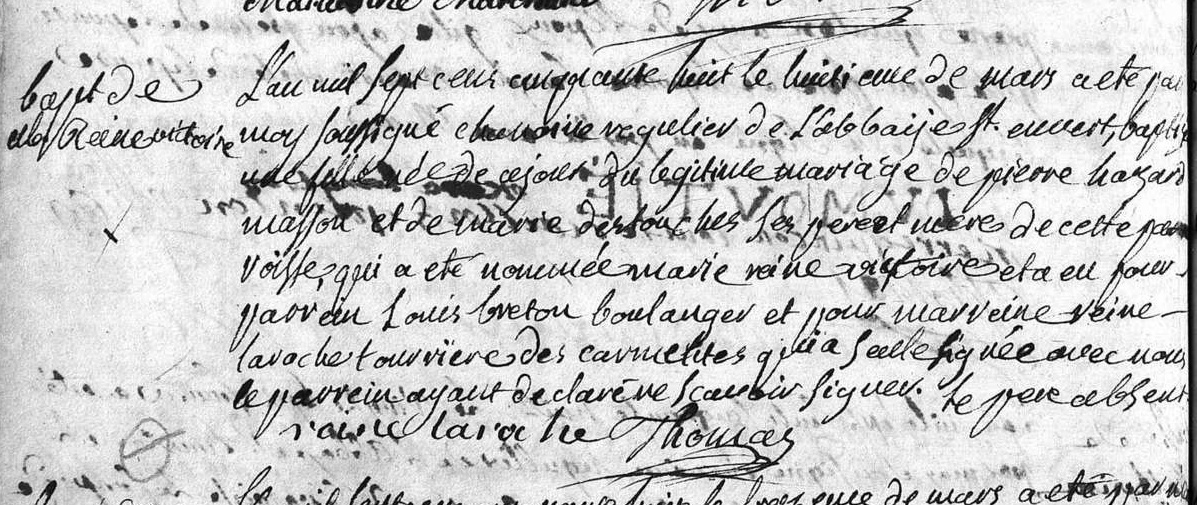 bapt de
marie Reine victoire
L'an mil sept cens cinquante huit le huitieme de mars a eté par
moy soussigné chanoine regulier de l'abbaije st. euvert, baptisé
une fille née de ce jour du legitime mariage de pierre hazard
masson et de marie destouches ses pere et mere de cette pa
roisse, qui a eté nommée marie reine victoire et a eu pour
parrein Louis breton boulanger et pour marreine reine
laroche tourriere des carmelites qui a seule signée avec nous
le parrein ayant declaré ne scavoir signer. le pere absent
reine laroche Thomas
de mars a eté par